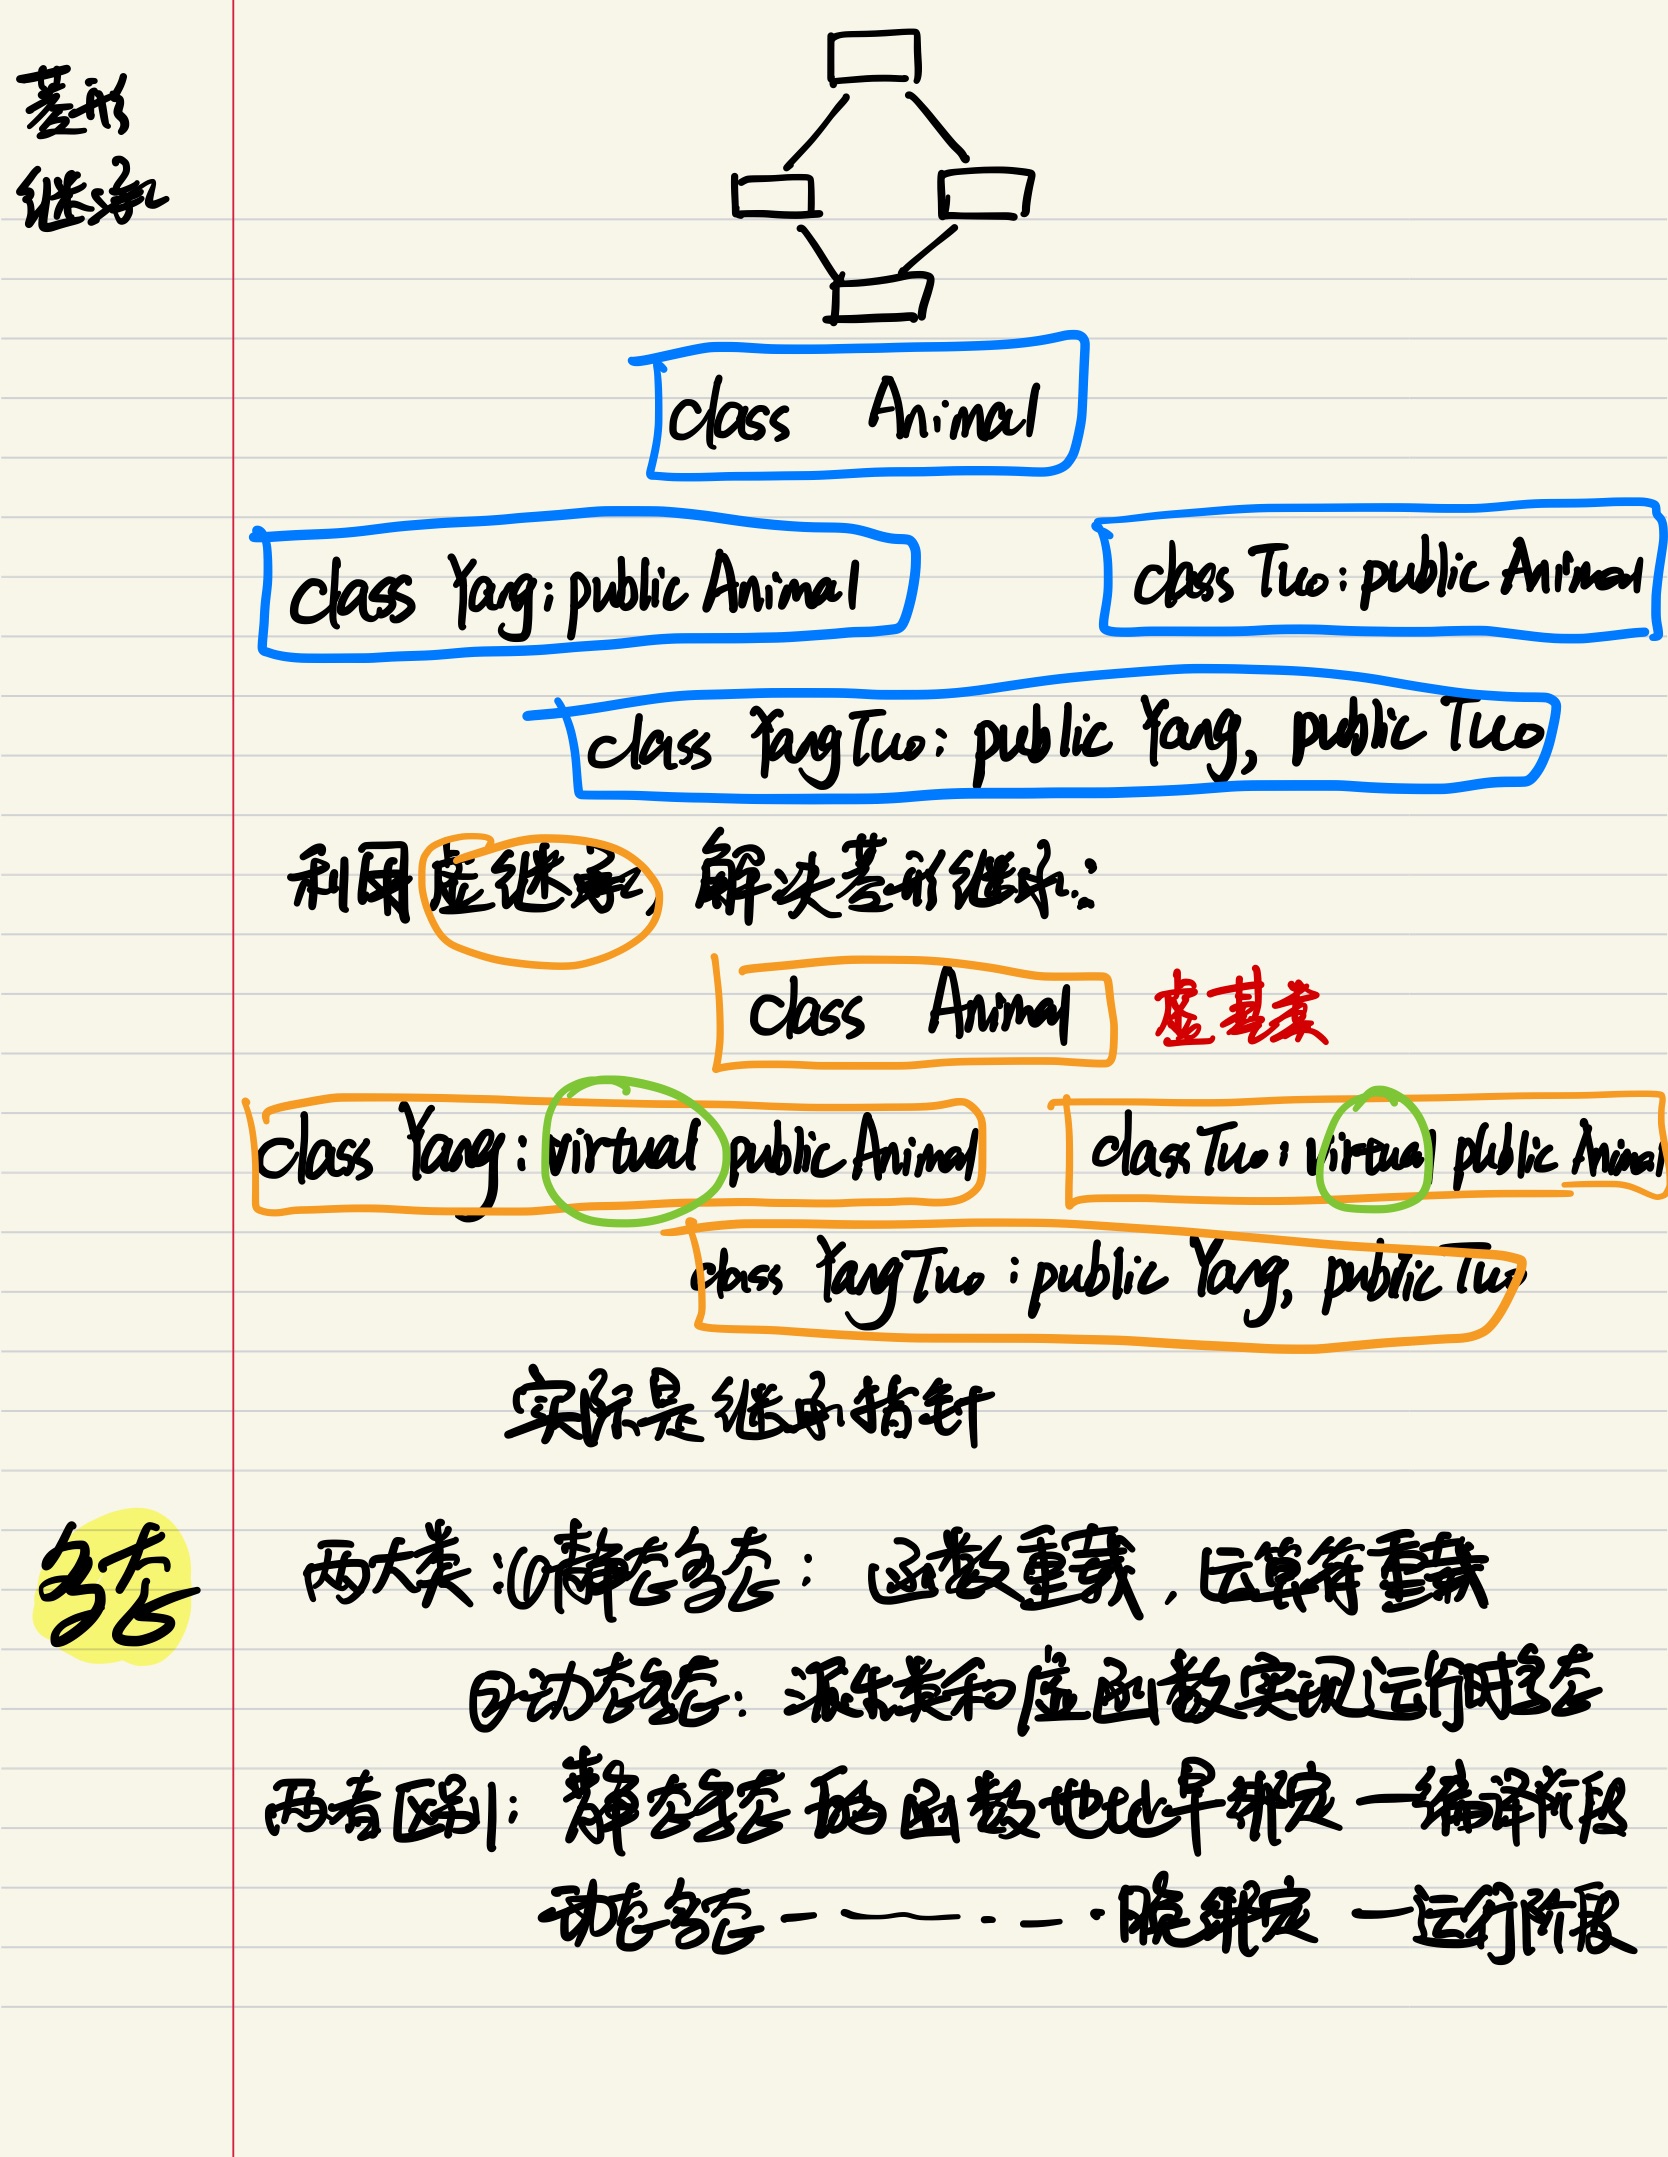 菱形
继承
class Animal
class Yang: public Animal
class Tuo: public Animal
class YangTuo: public Yang, public Tuo
利用虚继承 解决菱形继承:
class Animal 虚基类
class Yang: virtual public Animal
class Tuo: virtual public Animal
class YangTuo: public Yang, public Tuo
实际是继承指针
多态
两大类:①静态多态: 函数重载, 运算符重载
②动态多态: 派生类和虚函数实现运行时多态
两者区别: 静态多态的函数地址早绑定 — 编译阶段
动态多态 - — - - — · 晚绑定 — 运行阶段